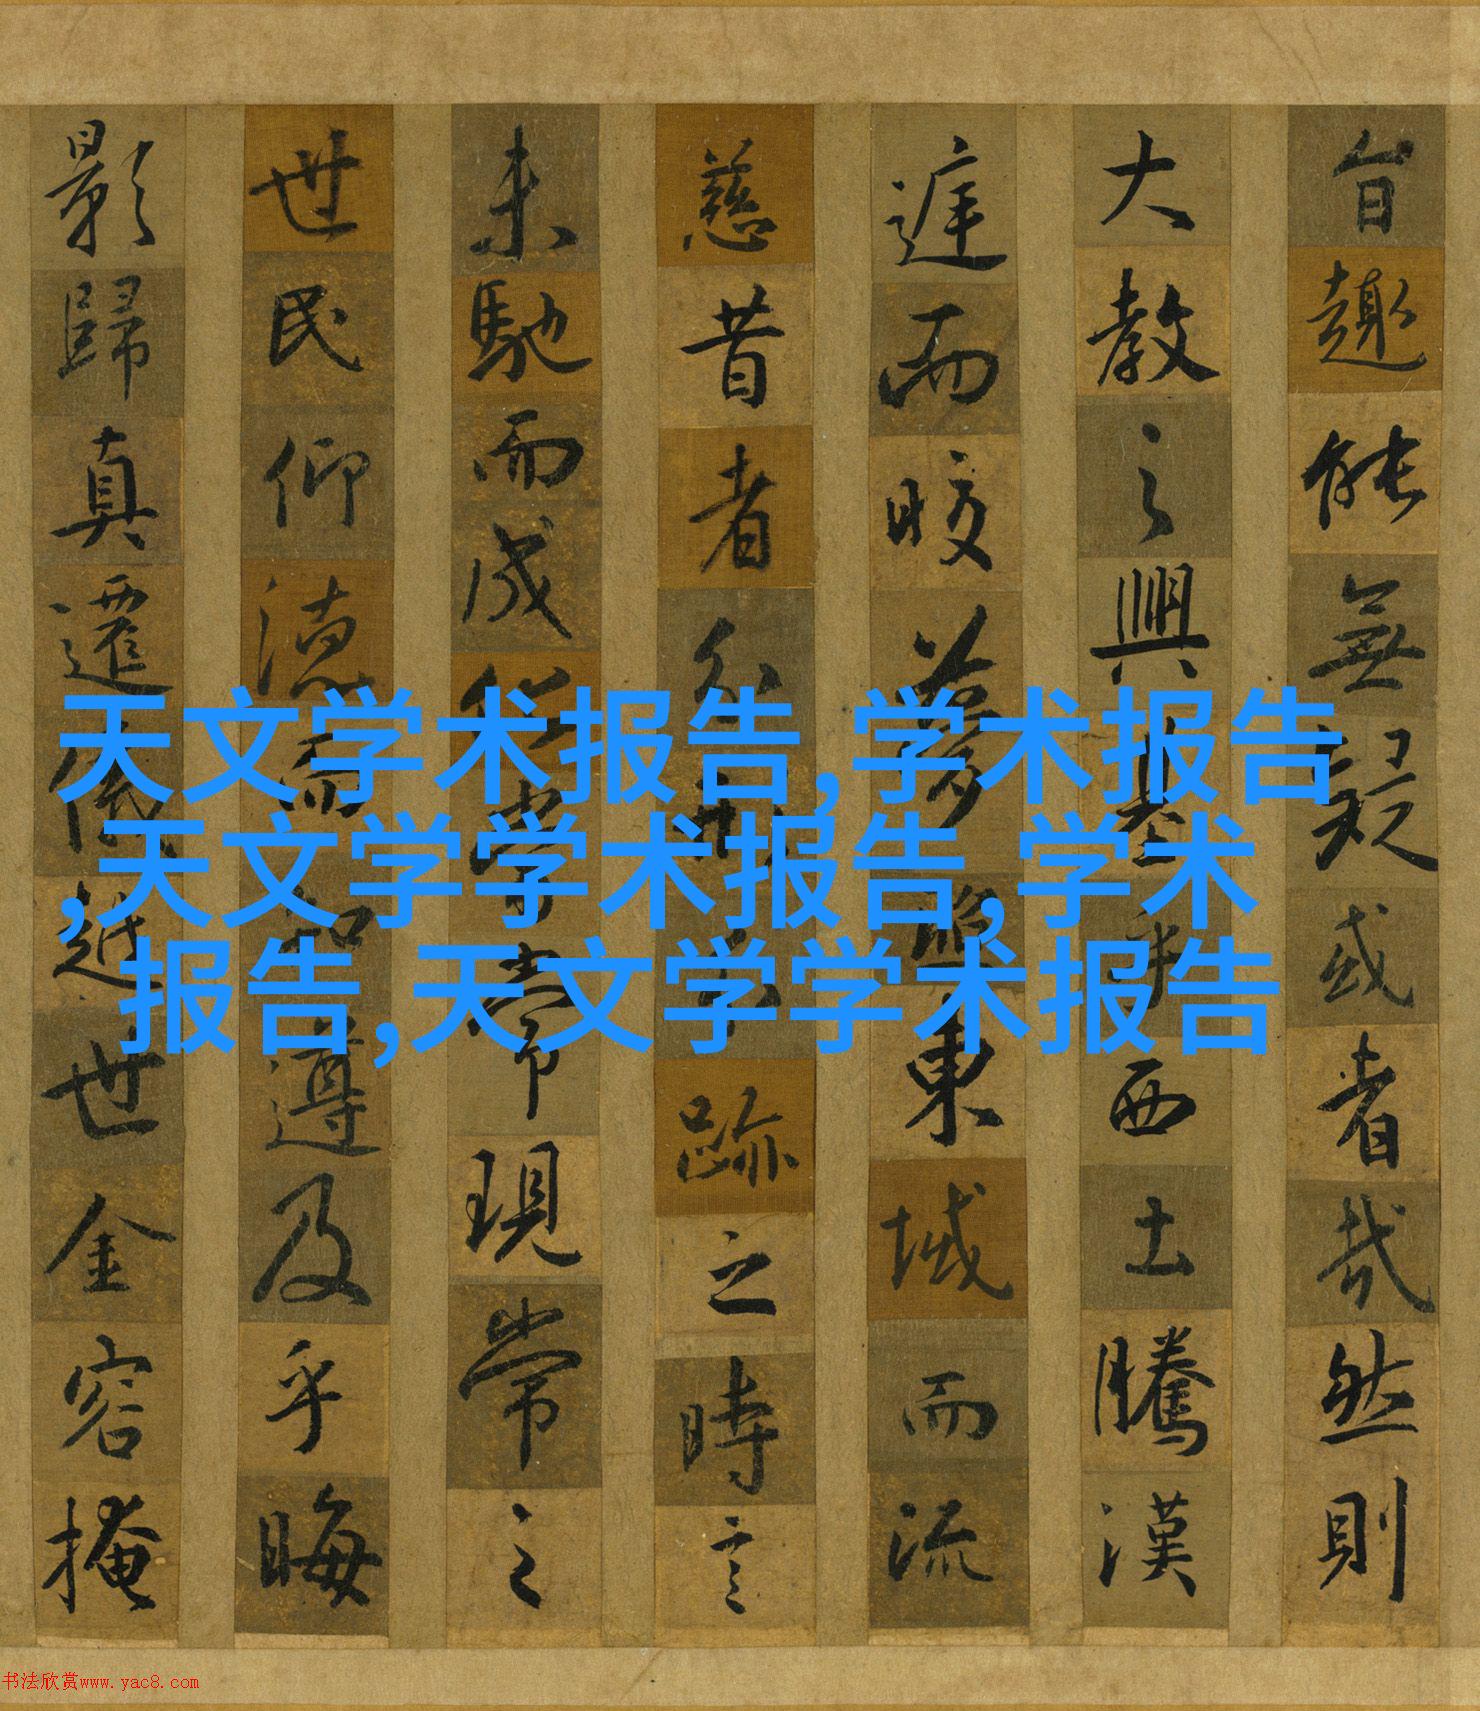 旨趣能無疑或者哉然則
大教之興基乎西土騰漢
庭而皎夢照東域而流
慈昔者分形分跡之時言
未馳而成化當常現常之
世民仰德而知遵及乎晦
影歸真遷儀越世金容掩
天文学术报告,学术报告
,天文学学术报告,学术
报告,天文学学术报告
书法欣赏www.yac8.com